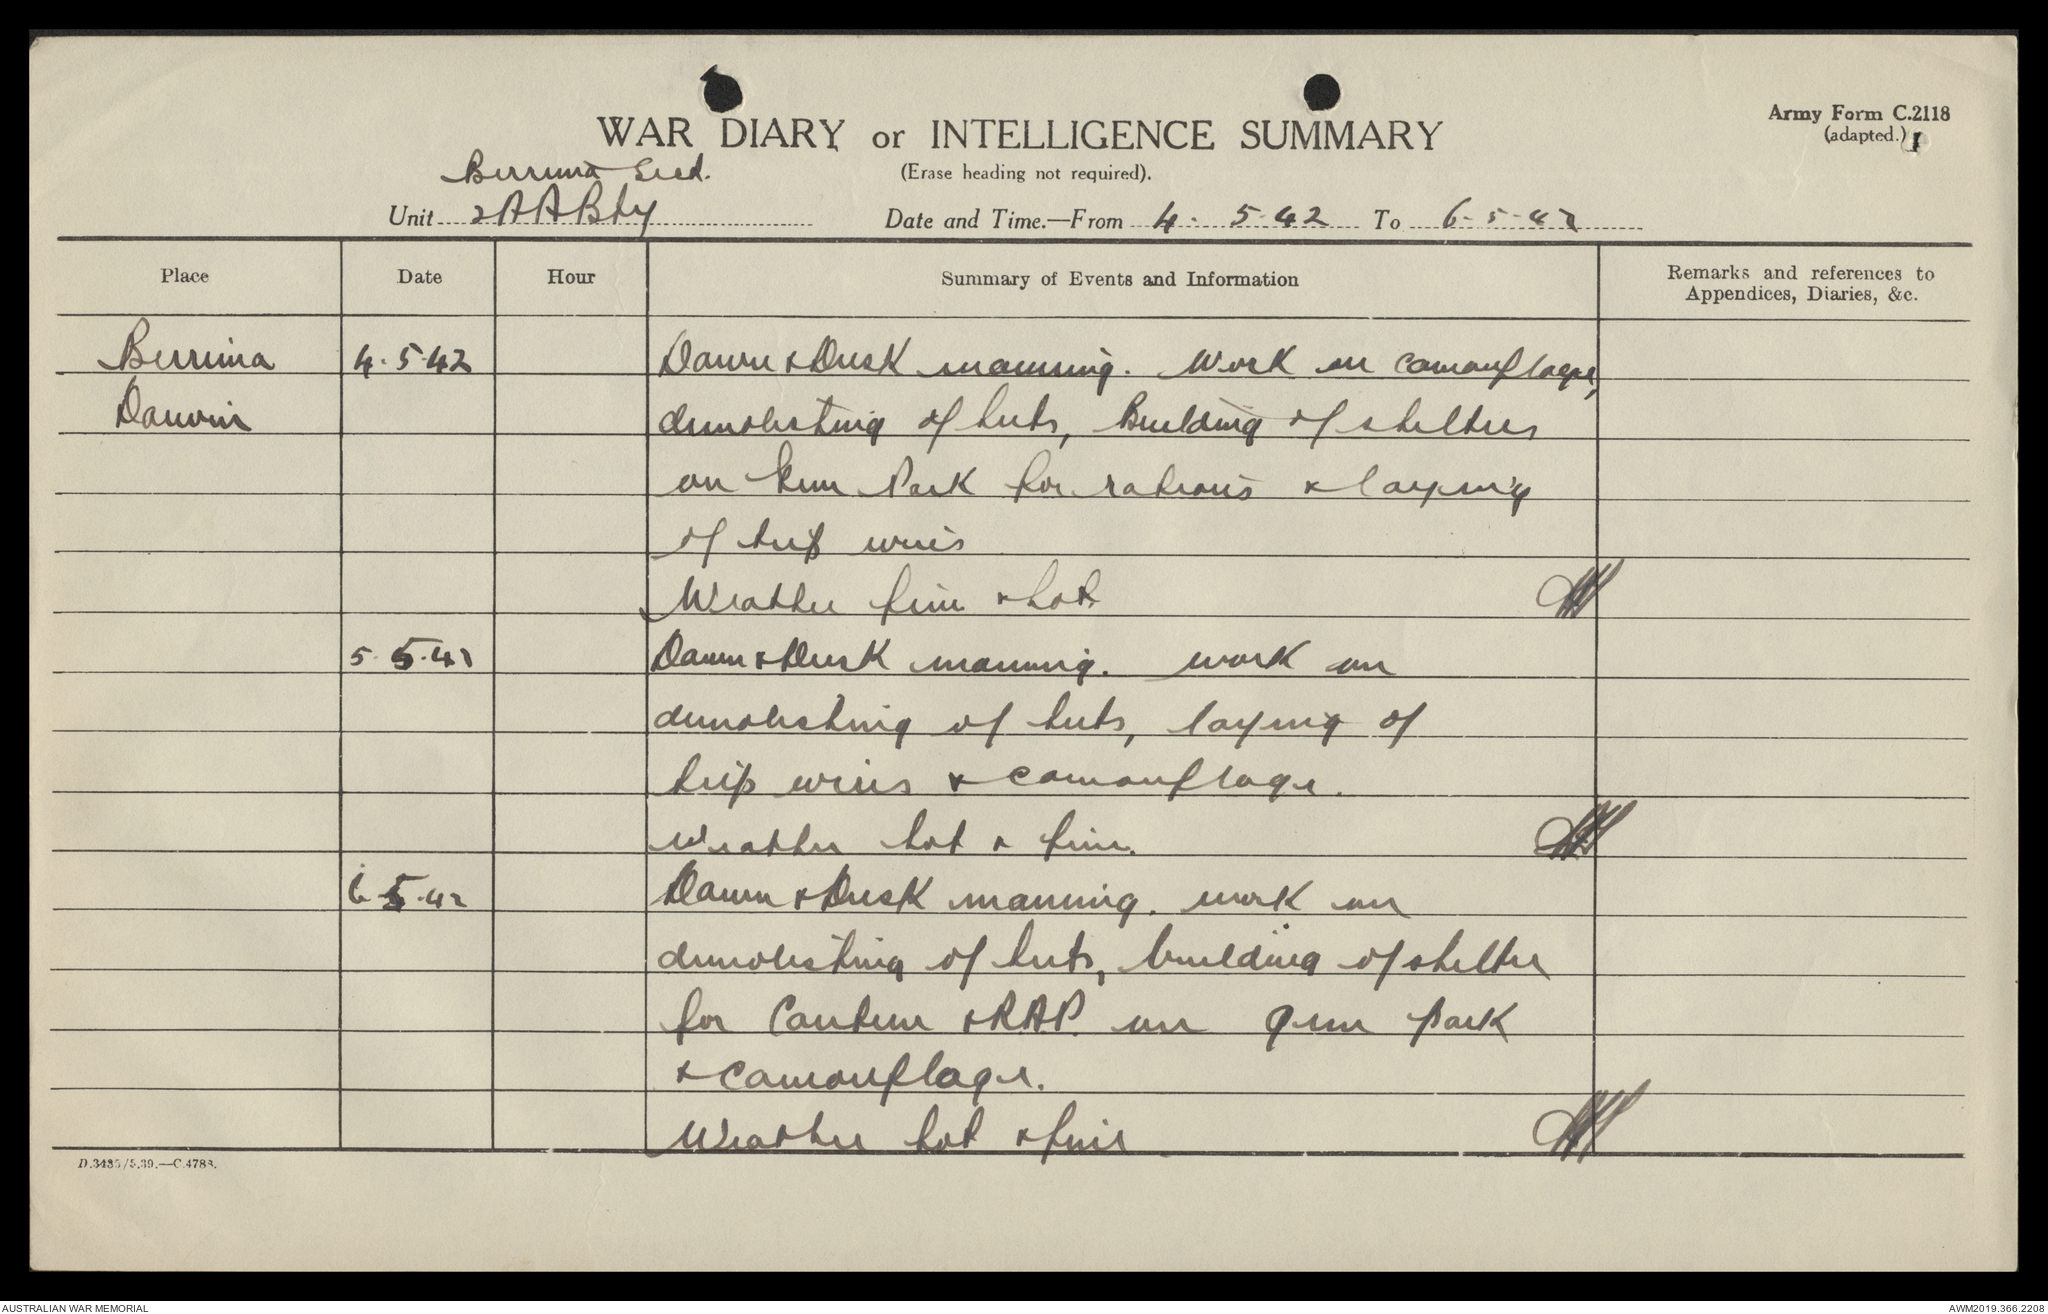 Army Form C.2118
(adapted.) 1
WAR DIARY or INTELLIGENCE SUMMARY
(Erase heading not required).
Berrima Sect.
Unit 2 A A Bty
Date and Time.—From 4. 5.42 To 6-5-42
Place Date Hour Summary of Events and Information Remarks and references to Appendices, Diaries, &c.
Berrima 4.5.42 Dawn & Dusk manning. Work on camouflage,
Darwin demolishing of huts, Building of shelters
on Gun Park for rations & laying
of trip wires
Weather fine & hot.
5.5.42 Dawn & Dusk manning. work on
demolishing of huts, laying of
trip wires & camouflage.
Weather hot & fine.
6 5.42 Dawn & Dusk manning. work on
demolishing of huts, building of shelter
for Canteen & RAP. on gun park
& camouflage.
Weather hot & fine
D.3485/5.39.—C.4783.
AUSTRALIAN WAR MEMORIAL
AWM2019.366.2208